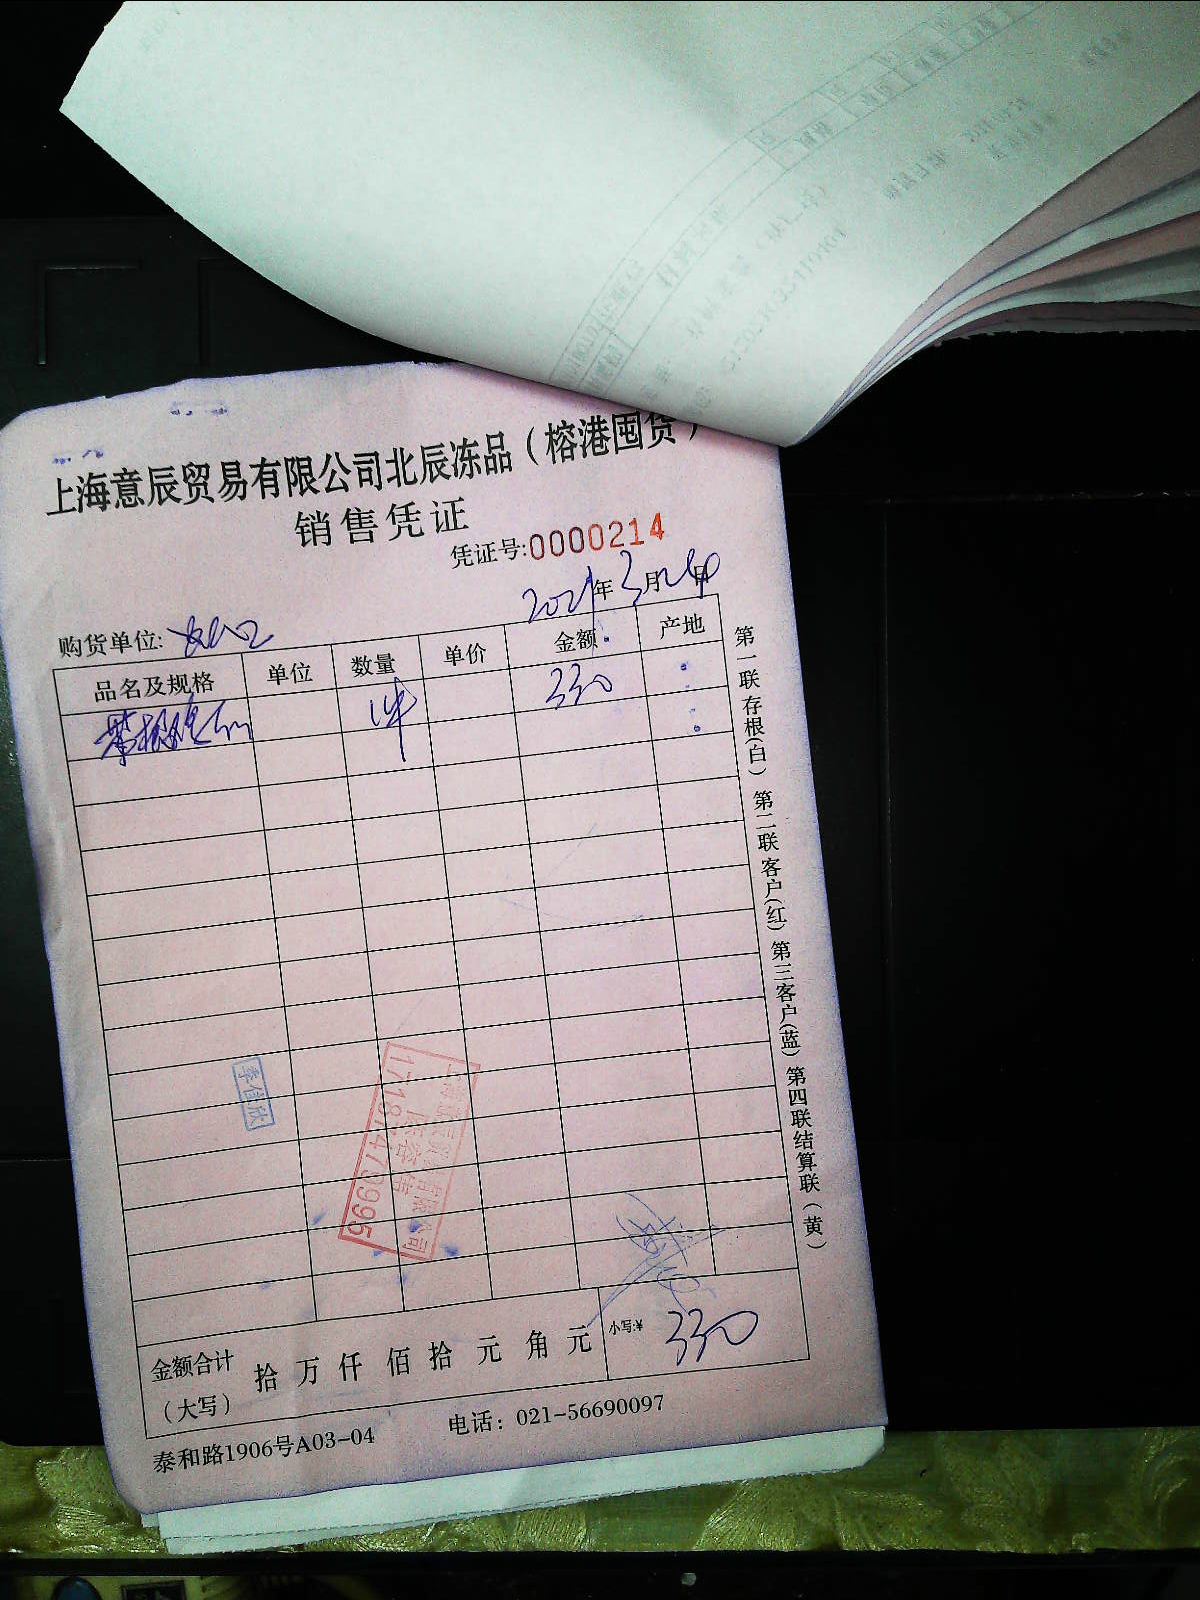 上海意辰贸易有限公司北辰冻品（榕港囤货）
销售凭证
凭证号:0000214
2021年3月 日
购货单位:
品名及规格 单位 数量 单价 金额 产地
1件 330
季佳欣
17187479995
金额合计（大写） 拾 万 仟 佰 拾 元 角 元 小写:¥ 330
泰和路1906号A03-04 电话: 021-56690097
第一联存根(白) 第二联客户(红) 第三客户(蓝) 第四联结算联(黄)